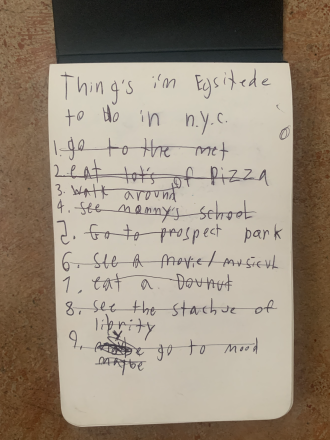 Thing's i'm Egsitede
to do in n.y.c.
1. go to the met
2. eat lot's of Pizza
3. walk around
4. see nanny's school
5. Go to prospect park
6. see a movie/musicul
7. eat a Dounut
8. see the stachue of
librity
9. go to mood
maybe